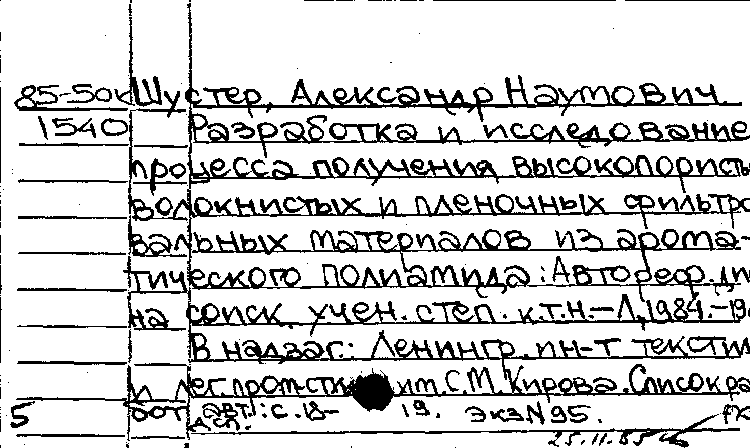 85-50к Шустер, Александр Наумович.
1540 Разработка и исследование
процесса получения высокопористы
волокнистых и пленочных фильтро
вальных материалов из арома-
тического полиамида: Автореф. ди
на соиск. учен. степ. к.т.н.-Л., 1984.-19
В надзаг.: Ленингр. ин-т текстил
и лег. пром-сти им. С.М. Кирова. Список ра
5 бот авт.: с. 18-19. Экз N 95.
ДСП.
25.11.85